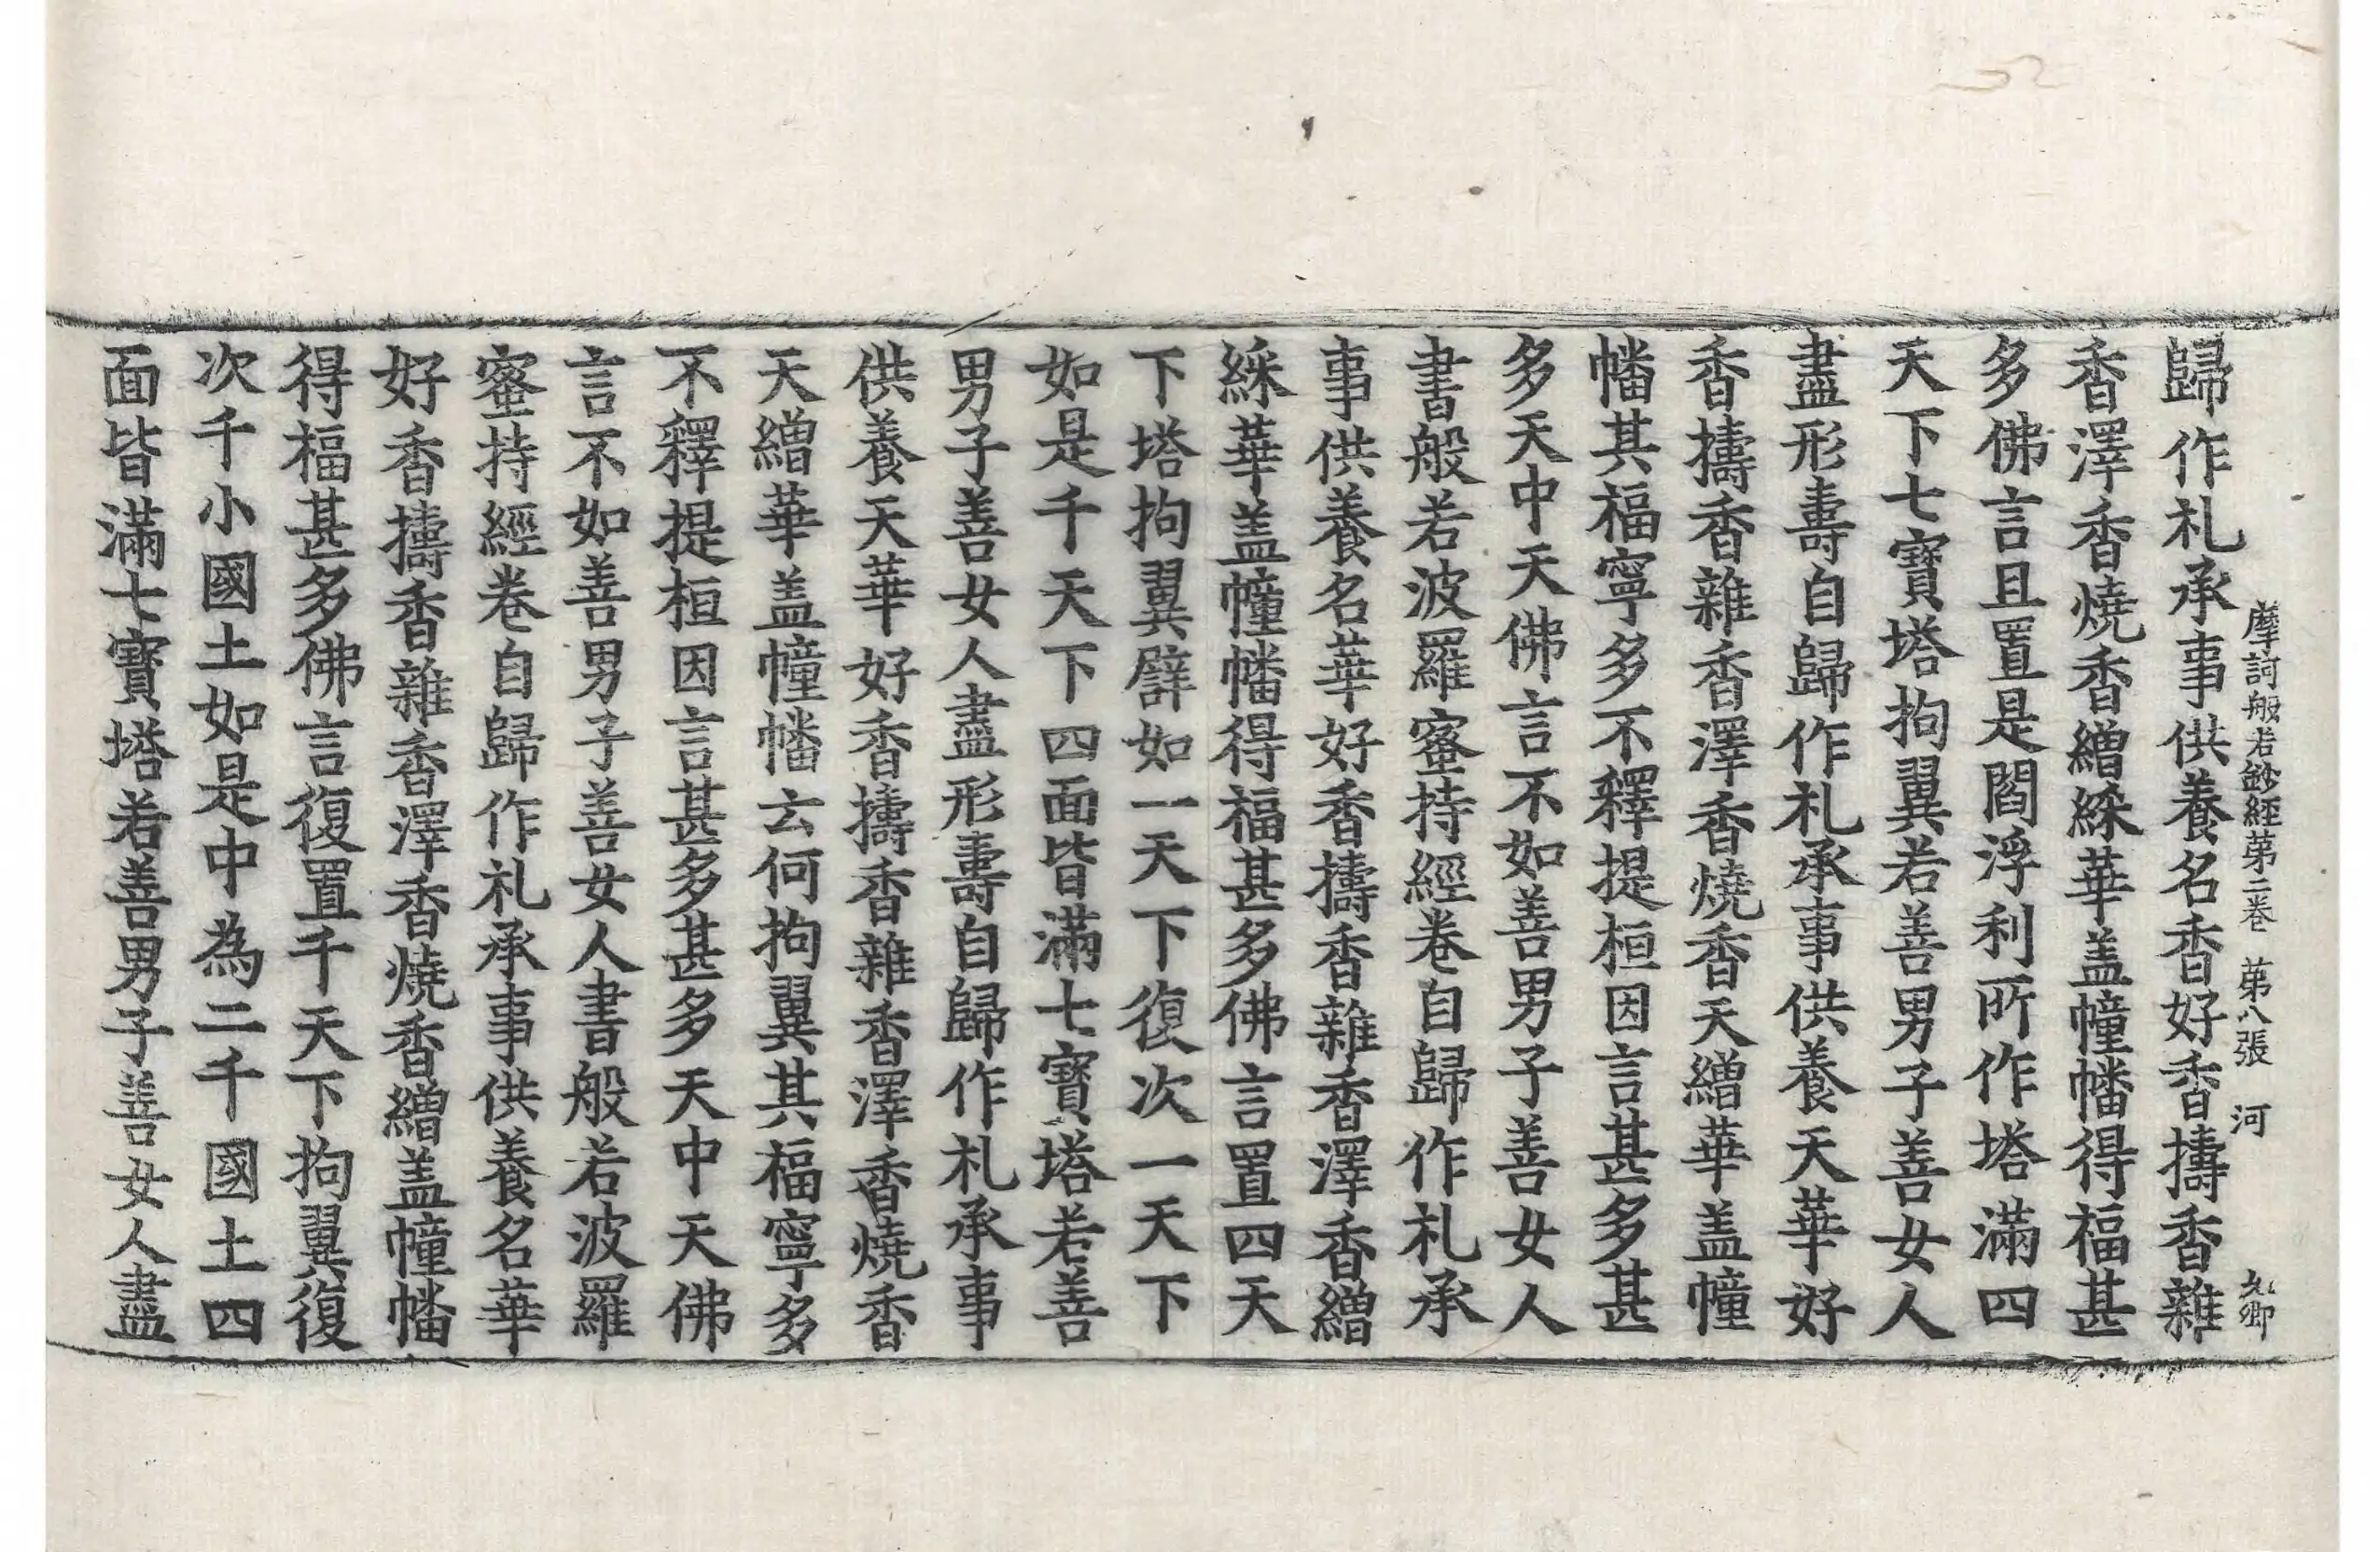 摩訶般若鈔経第二巻 第八張 河
歸作礼承事供養名香好香擣香雜
香澤香燒香繒綵華盖幢幡得福甚
多佛言且置是閻浮利所作塔滿四
天下七寶塔拘翼若善男子善女人
盡形壽自歸作礼承事供養天華好
香擣香雜香澤香燒香天繒華盖幢
幡其福寧多不釋提桓因言甚多甚
多天中天佛言不如善男子善女人
書般若波羅蜜持經卷自歸作礼承
事供養名華好香擣香雜香澤香繒
綵華盖幢幡得福甚多佛言置四天
下塔拘翼譬如一天下復次一天下
如是千天下四面皆滿七寶塔若善
男子善女人盡形壽自歸作札承事
供養天華好香擣香雜香澤香燒香
天繒華盖幢幡云何拘翼其福寧多
不釋提桓因言甚多甚多天中天佛
言不如善男子善女人書般若波羅
蜜持經卷自歸作礼承事供養名華
好香擣香雜香澤香燒香繒盖幢幡
得福甚多佛言復置千天下拘翼復
次千小國土如是中為二千國土四
面皆滿七寶塔若善男子善女人盡